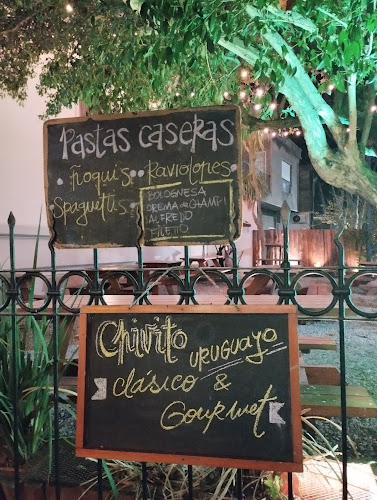 Pastas caseras
• Ñoquis • Raviolones
• Spaguettis
BOLOGNESA
CREMA de CHAMPI
ALFREDO
FILETTO
Chivito uruguayo
clásico &
Gourmet